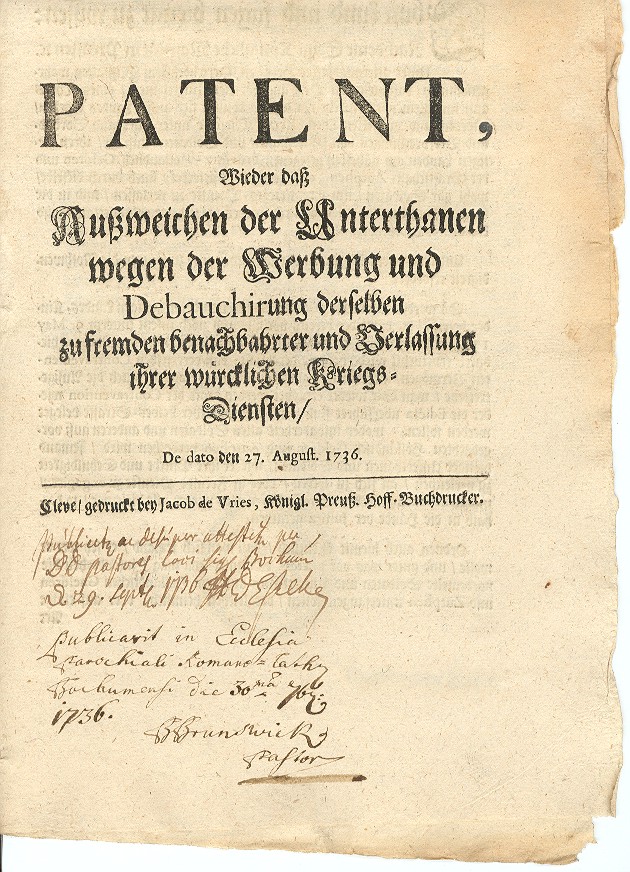 PATENT,
Wieder daß
Außweichen der Unterthanen
wegen der Werbung und
Debauchirung derselben
zu fremden benachbahrter und Verlassung
ihrer würcklichen Kriegs-
Diensten/
De dato den 27. August. 1736.
Cleve/ gedruckt bey Jacob de Vries, Königl. Preuß. Hoff-Buchdrucker.
per
DD pastores loci
d 29. Septb 1736
Publicavit in Ecclesia
Parochiali Romano-Cath
Bochumensi die 30ma 7br.
1736.
Brunswick
Pastor